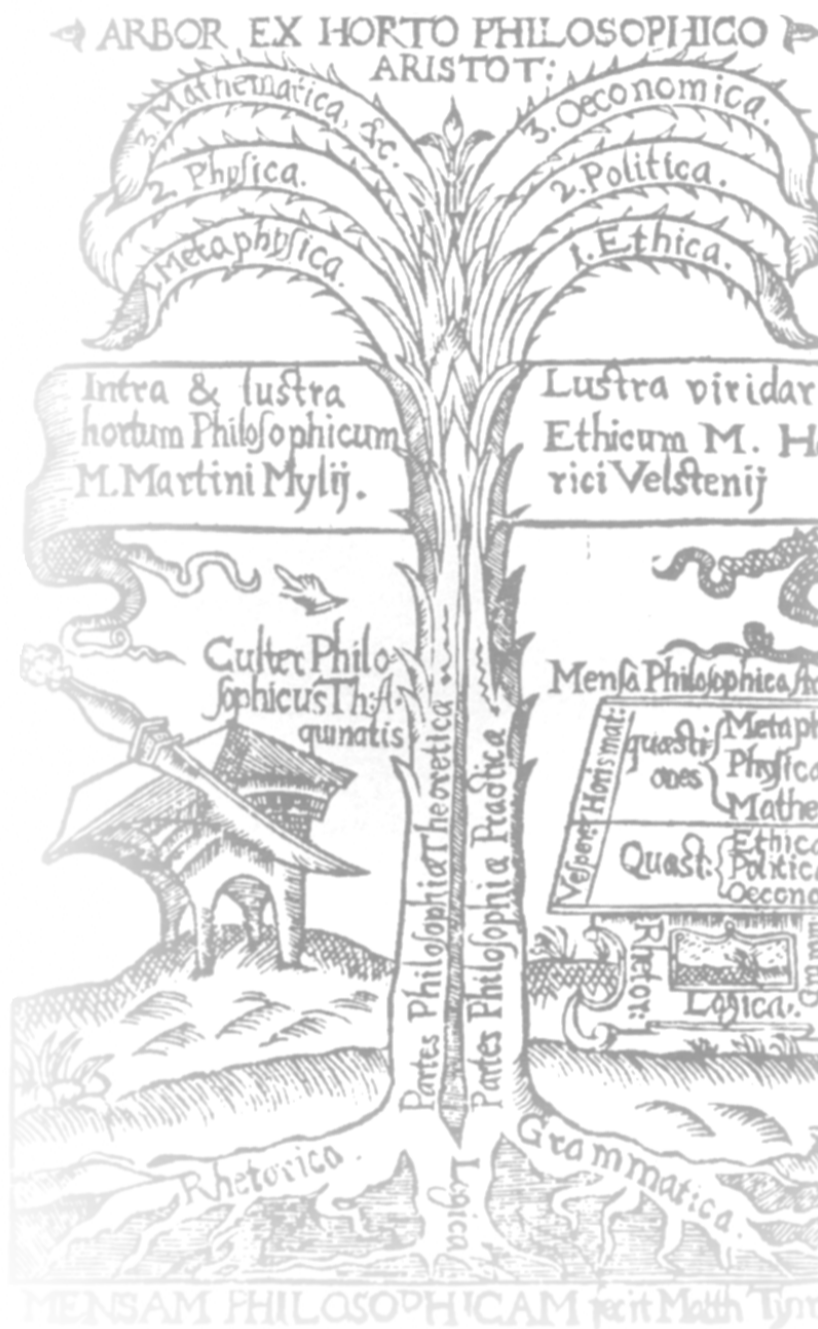 ARBOR EX HORTO PHILOSOPHICO
ARISTOT:
3. Mathematica, &c.
2. Phyſica.
1. Metaphyſica.
3. Oeconomica.
2. Politica.
1. Ethica.
Intra & luſtra
hortum Philoſophicum
M. Martini Mylij.
Luſtra viridar
Ethicum M. H
rici Velſtenij
Culter Philo-
ſophicus Th: A-
quinatis
Partes Philoſophiæ Theoretica
Partes Philoſophiæ Practica
Menſa Philoſophica
Veſperæ Horismat:
quæſti-
ones
Metaph
Phyſica
Mathe
Quæſt:
Ethica
Politica
Oecono
Rhetor:
Logica.
Rhetorica.
Logica
Grammatica.
MENSAM PHILOSOPHICAM fecit Matth